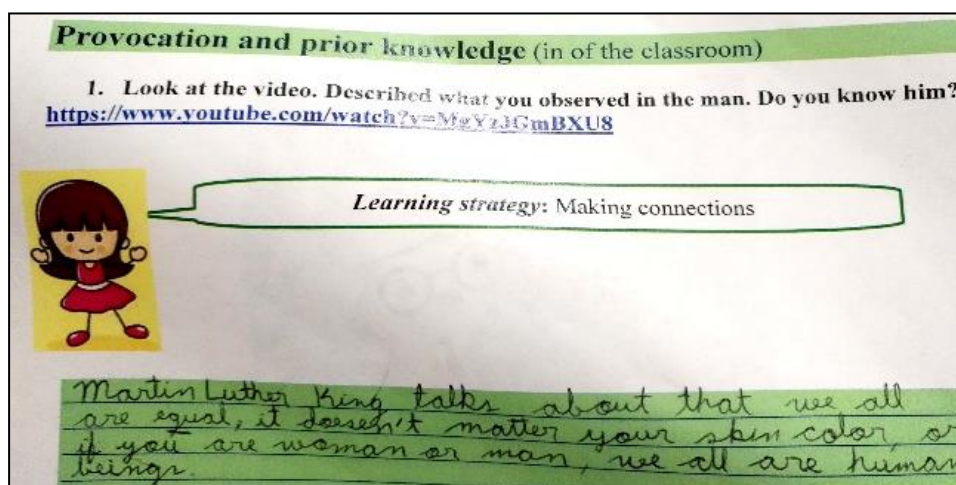 Provocation and prior knowledge (in of the classroom)
1. Look at the video. Described what you observed in the man. Do you know him?
https://www.youtube.com/watch?v=MgYzJGmBXU8
Learning strategy: Making connections
Martin Luther King talks about that we all
are equal, it doesen't matter your skin color, or
if you are woman or man, we all are human
beings.